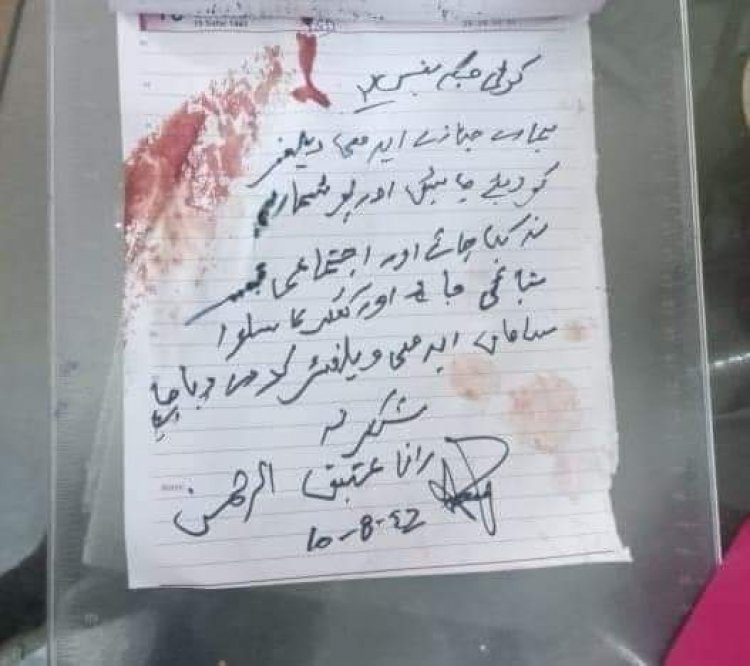 کوئی جگہ نہیں
ہمارے جنازے ایدھی ویلفیر
کو دیئے جائیں اور پوسٹمارٹم
نہ کیا جائے اور اجتماعی قبر
بنائی جائے اور گھر کا سارا
سامان ایدھی ویلفیئر کو دے دیا جائے
شکریہ
رانا عتیق الرحمن
10-8-22